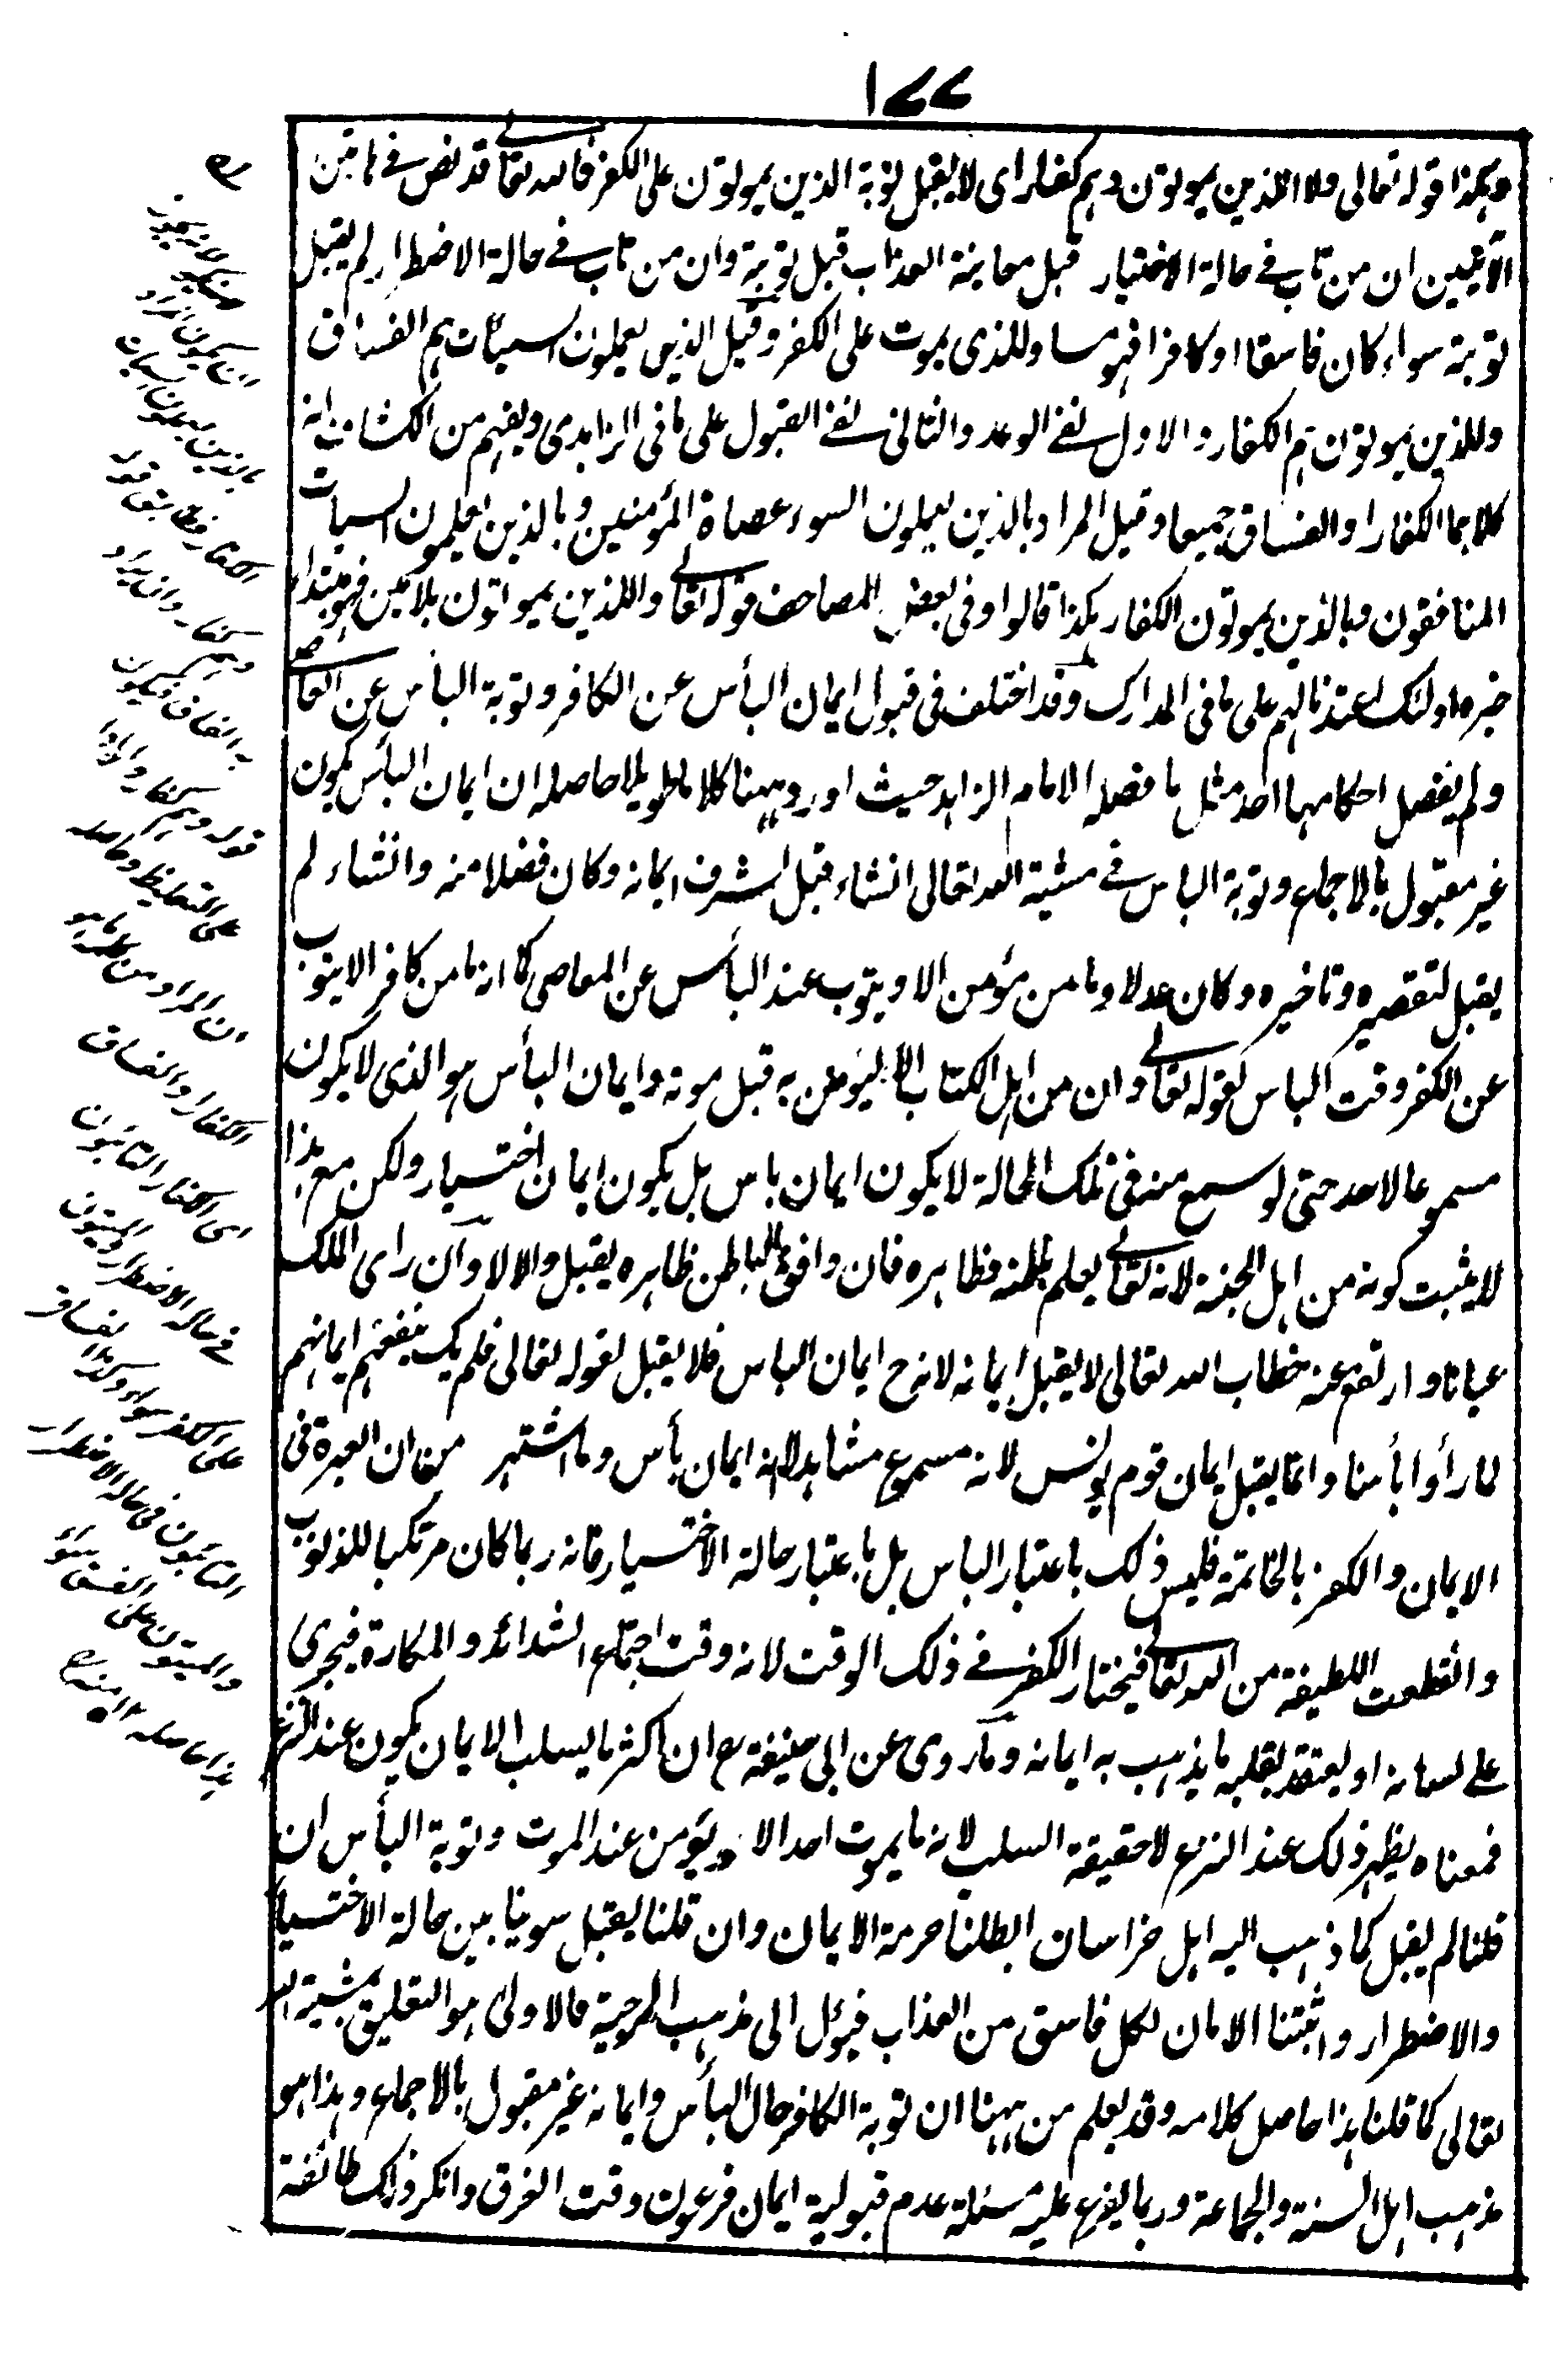 ١٧٧
وهكذا قوله تعالى ولا الذين يموتون وهم كفار اى لا يقبل توبة الذين يموتون على الكفر فالله تعالى قد نص فى هاتين
الآيتين ان من تاب فى حالة الاختيار قبل معاينة العذاب قبل توبة وان من تاب فى حالة الاضطرار لم يقبل
توبة سواء كان فاسقا او كافرا فهو مساو للذى يموت على الكفر وقيل الذين يعملون السيئات هم الفساق
وللذين يموتون هم الكفار والاول نفى الوعد والثانى نفى القبول على ما فى الزاهدى ويفهم من الكشاف انه
كلاهما الكفار او الفساق جميعا وقيل المراد بالذين يعملون السوء عصاة المؤمنين وبالذين يعملون السيات
المنافقون وبالذين يموتون الكفار هكذا قالوا وفى بعض المصاحف قوله تعالى وللذين يموتون بلامين فهو مبتدا
خبره اولئك اعتدنا لهم على ما فى المدارك وقد اختلف فى قبول ايمان البأس عن الكافر وتوبة البأس عن العاصى
ولم يفصل احكامهما احد مثل ما فصله الامام الزاهد حيث اورد ههنا كلاما طويلا حاصله ان ايمان البأس يكون
غير مقبول بالاجماع وتوبة الباس فى مشية الله تعالى انشاء قبل لشرف ايمانه وكان فضلا منه وانشاء لم
يقبل لتقصيره وتاخيره وكان عدلا وما من مؤمن الا ويتوب عند البأس عن المعاصى كما انه ما من كافر الا يتوب
عن الكفر وقت الباس لقوله تعالى وان من اهل الكتاب الا ليؤمنن به قبل موته وايمان البأس هو الذى لا يكون
مسموعا لاحد حتى لو سمع منه فى تلك الحالة لا يكون ايمان باس بل يكون ايمان اختيار ولكن مع هذا
لا يثبت كونه من اهل الجنة لانه تعالى يعلم باطنه وظاهره فان وافق الباطن ظاهره يقبل والا لا وان راى الملك
عيانا وارتفع عنه خطاب الله تعالى لا يقبل ايمانه لانه ح ايمان الباس فلا يقبل لقوله تعالى فلم يك ينفعهم ايمانهم
لما رأوا بأسنا وانما يقبل ايمان قوم يونس لانه مسموع مشاهد لا انه ايمان بأس وما اشتهر من ان العبرة فى
الايمان والكفر بالخاتمة فليس ذلك باعتبار الباس بل باعتبار حالة الاختيار فانه ربما كان مرتكبا للذنوب
وانقطعت اللطيفة من الله تعالى فيختار الكفر فى ذلك الوقت لانه وقت اجتماع الشدائد والمكارة فيجرى
على لسانه او يعتقد بقلبه ما يذهب به ايمانه وما روى عن ابى حنيفة رح ان اكثر ما يسلب الايمان يكون عند النزع
فمعناه يظهر ذلك عند النزع لا حقيقة السلب لانه ما يموت احد الا ويؤمن عند الموت وتوبة البأس ان
قلنا لم يقبل كما ذهب اليه اهل خراسان ابطلنا حرمة الايمان وان قلنا يقبل سوينا بين حالة الاختيار
والاضطرار واثبتنا الامان لكل فاسق من العذاب فيؤل الى مذهب المرجية فالاولى هو التعليق بمشية الله
تعالى كما قلنا هذا حاصل كلامه وقد يعلم من ههنا ان توبة الكافر حال البأس وايمانه غير مقبول بالاجماع وهذا هو
مذهب اهل السنة والجماعة وربما يفرع عليه مسئلة عدم قبولية ايمان فرعون وقت الغرق وانكر ذلك طائفة
ان يكون المراد
بالذين يعملون السيات
الكفار فطابق قوله
وهم كفار وان يراد
به الفساق فيكون
قوله وهم كفار واردا
على التغليظ وحاصله
ان المراد من
الكفار والفساق
اى الكفار التائبون
فى حالة الاضطرار والميتون
على الكفر سواء وكذا الفساق
التائبون فى حالة الاضطرار
والميتون على الفسق سواء
هذا حاصله ١٢ منه